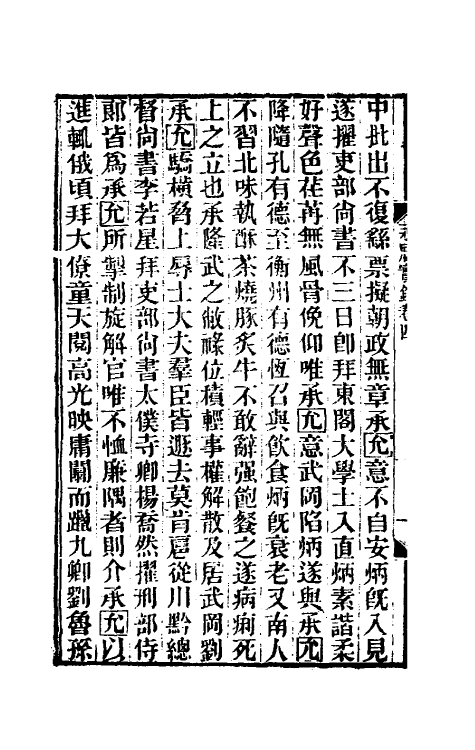 中批出不復繇票擬朝政無章承允意不自安炳旣入見
遂擢吏部尙書不三日卽拜東閣大學士入直炳素諧柔
好聲色荏苒無風骨俛仰唯承允意武岡陷炳遂與承允
降隨孔有德至衡州有德恆召與飮食炳旣衰老又南人
不習北味執酥茶燒豚炙牛不敢辭强飽餐之遂病痢死
上之立也承隆武之敝祿位積輕事權解散及居武岡劉
承允驕橫脅上辱士大夫羣臣皆逃去莫肯扈從川黔總
督尙書李若星拜吏部尙書太僕寺卿楊喬然擢刑部侍
郞皆爲承允所掣制旋解官唯不恤廉隅者則介承允以
進輒俄頃拜大僚童天閱高光映庸闒而躐九卿劉魯孫
永曆實錄卷四